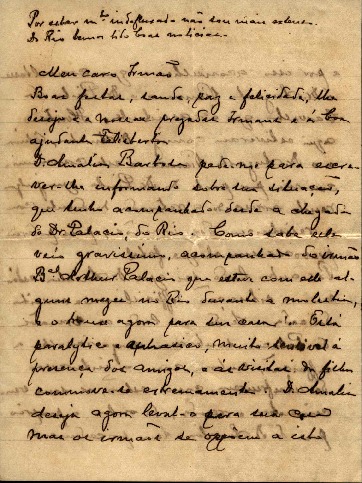 Por estar mto indefluxado não sou mais extenso.
Do Rio temos tido boas noticias.
Meu caro Irmão
Boas festas, saude, paz e felicidade, lhe
desejo e a nossa prezada Irmana e a boa
ajudante Felisberta.
D. Amalia Barbosa pede-me para escre
ver-lhe informando sobre sua situação,
que tenho acompanhado desde a chegada
do Dr. Palacio, do Rio. Como sabe elle
veio gravissimo, acompanhado do irmão
Bel Arthur Palacio que esteve com elle al
guns mezes no Rio durante a molestia,
e o trouxe agora para sua casa. Está
paralytico e aphasico, muito sensivel á
presença dos amigos, e ás visitas do filho
commove-se extremamente. D. Amalia
deseja agora leval-o para sua casa
mas os irmãos se oppõem a isto